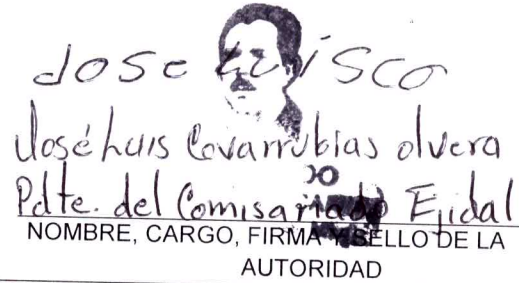 Jose Luis Co
José Luis Covarrubias olvera
Pdte. del Comisariado Ejidal
NOMBRE, CARGO, FIRMA Y SELLO DE LA
AUTORIDAD